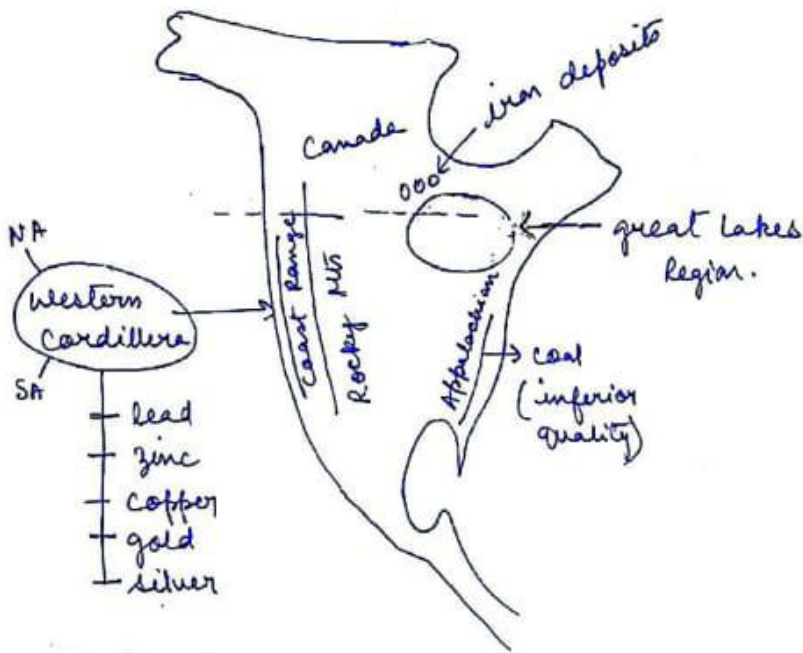 iron deposits
Canada
great lakes
Region.
NA
Western
Cordillera
SA
Coast Range
Rocky Mts
Appalachian
coal
(inferior
quality)
lead
zinc
copper
gold
silver